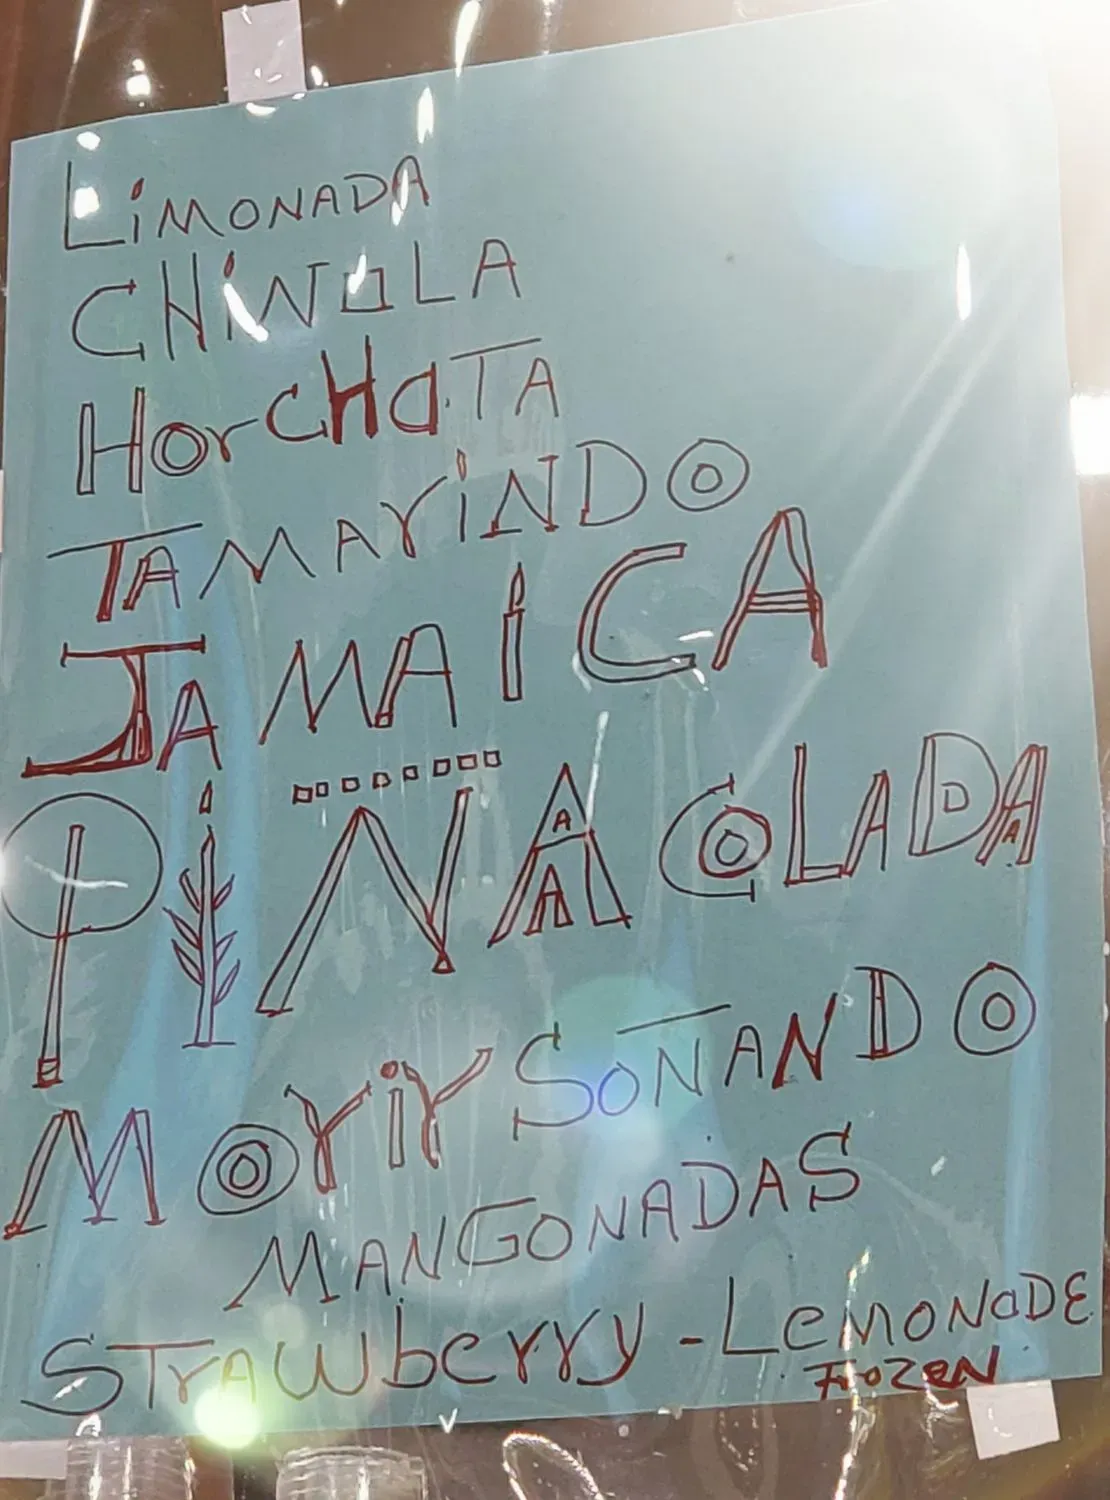 LiMONADA
CHiNOLA
HorCHaTA
TAMAriNDO
JAMAICA
PiÑA COLADA
MOrir SOÑANDO
MANGONADAS
STrAWberry - LeMONaDE
FrOZEN